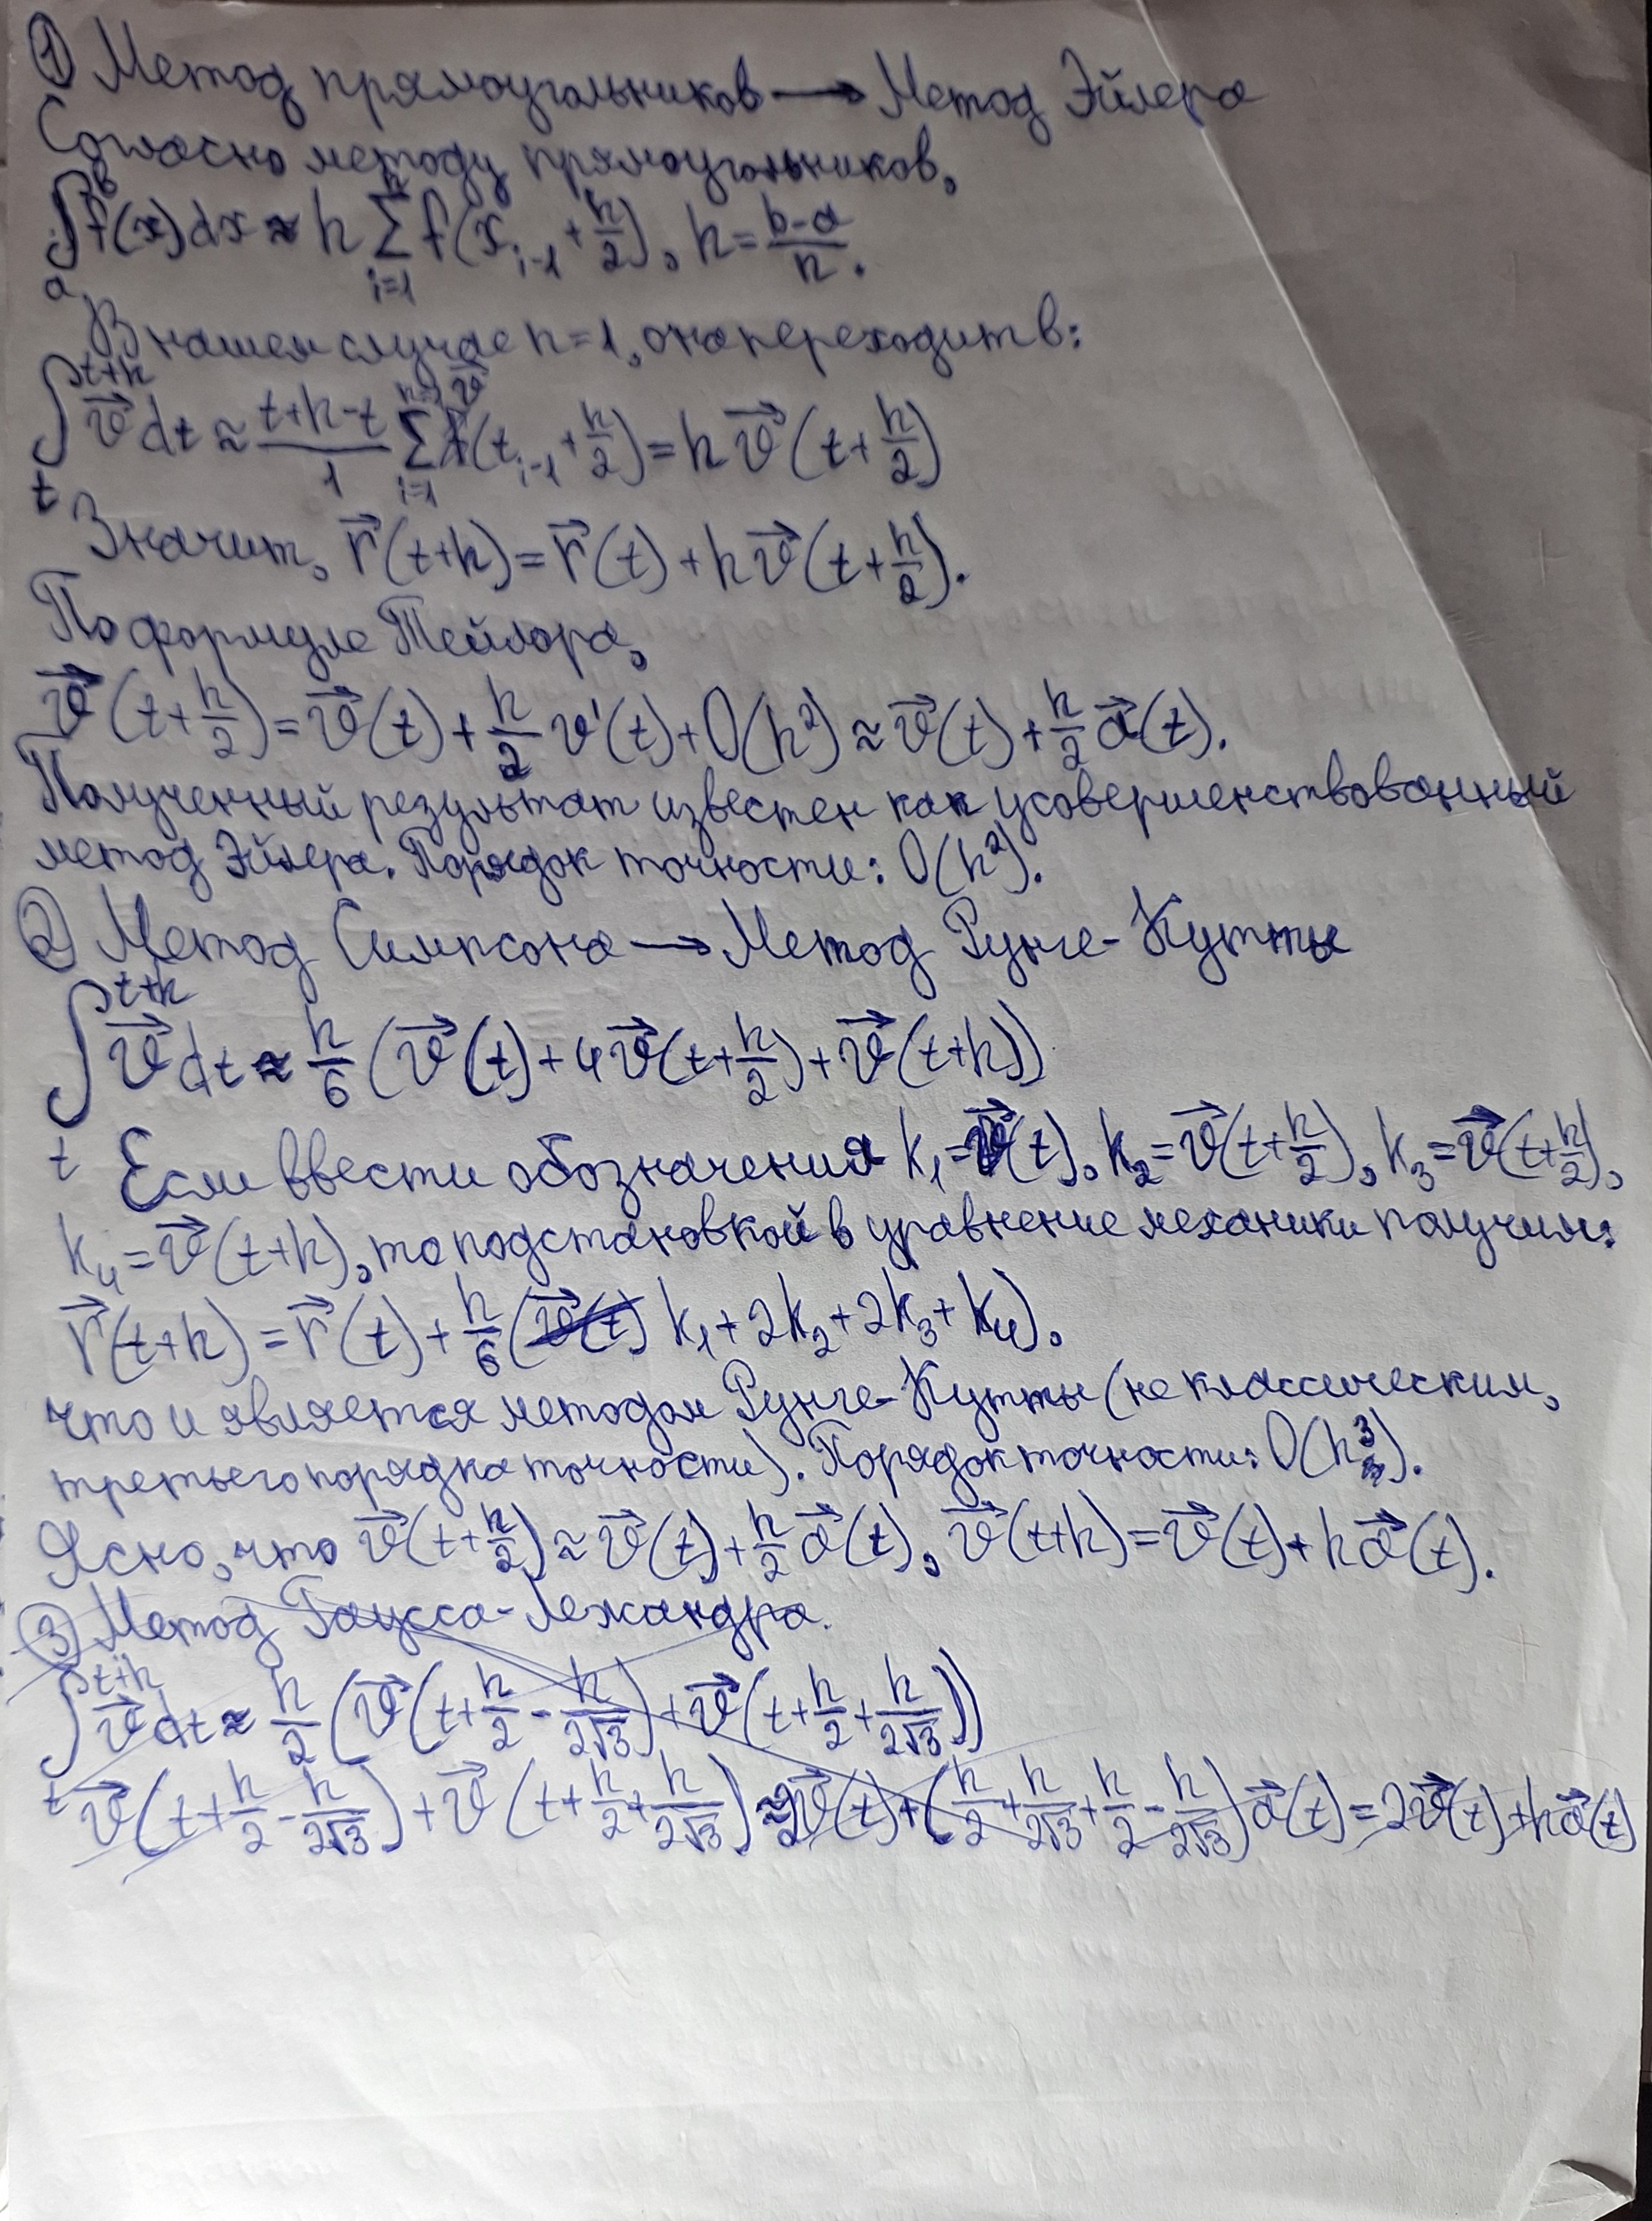 ① Метод прямоугольников → Метод Эйлера
Согласно методу прямоугольников,
∫ₐᵇ f(x)dx ≈ h Σᵢ₌₁ⁿ f(xᵢ₋₁ + h/2), h = (b-a)/n.
В нашем случае n=1, она переходит в:
∫ₜᵗ⁺ʰ v⃗ dt ≈ (t+h-t)/1 Σᵢ₌₁ⁿ⁼¹ v⃗(tᵢ₋₁ + h/2) = h v⃗(t + h/2)
Значит, r⃗(t+h) = r⃗(t) + h v⃗(t + h/2).
По формуле Тейлора,
v⃗(t + h/2) = v⃗(t) + h/2 v'(t) + O(h²) ≈ v⃗(t) + h/2 a⃗(t).
Полученный результат известен как усовершенствованный
метод Эйлера. Порядок точности: O(h²).
② Метод Симпсона → Метод Рунге-Кутты
∫ₜᵗ⁺ʰ v⃗ dt ≈ h/6 (v⃗(t) + 4v⃗(t + h/2) + v⃗(t+h))
Если ввести обозначения k₁ = v⃗(t), k₂ = v⃗(t + h/2), k₃ = v⃗(t + h/2),
k₄ = v⃗(t+h), то подстановкой в уравнение механики получим:
r⃗(t+h) = r⃗(t) + h/6 (v⃗(t) k₁ + 2k₂ + 2k₃ + k₄),
что и является методом Рунге-Кутты (не классическим,
третьего порядка точности). Порядок точности: O(h³).
Ясно, что v⃗(t + h/2) ≈ v⃗(t) + h/2 a⃗(t), v⃗(t+h) = v⃗(t) + h a⃗(t).
③ Метод Гаусса-Лежандра.
∫ₜᵗ⁺ʰ v⃗ dt ≈ h/2 (v⃗(t + h/2 - h/2√3) + v⃗(t + h/2 + h/2√3))
v⃗(t + h/2 - h/2√3) + v⃗(t + h/2 + h/2√3) ≈ 2v⃗(t) + (h/2 + h/2√3 + h/2 - h/2√3) a⃗(t) = 2v⃗(t) + h a⃗(t)